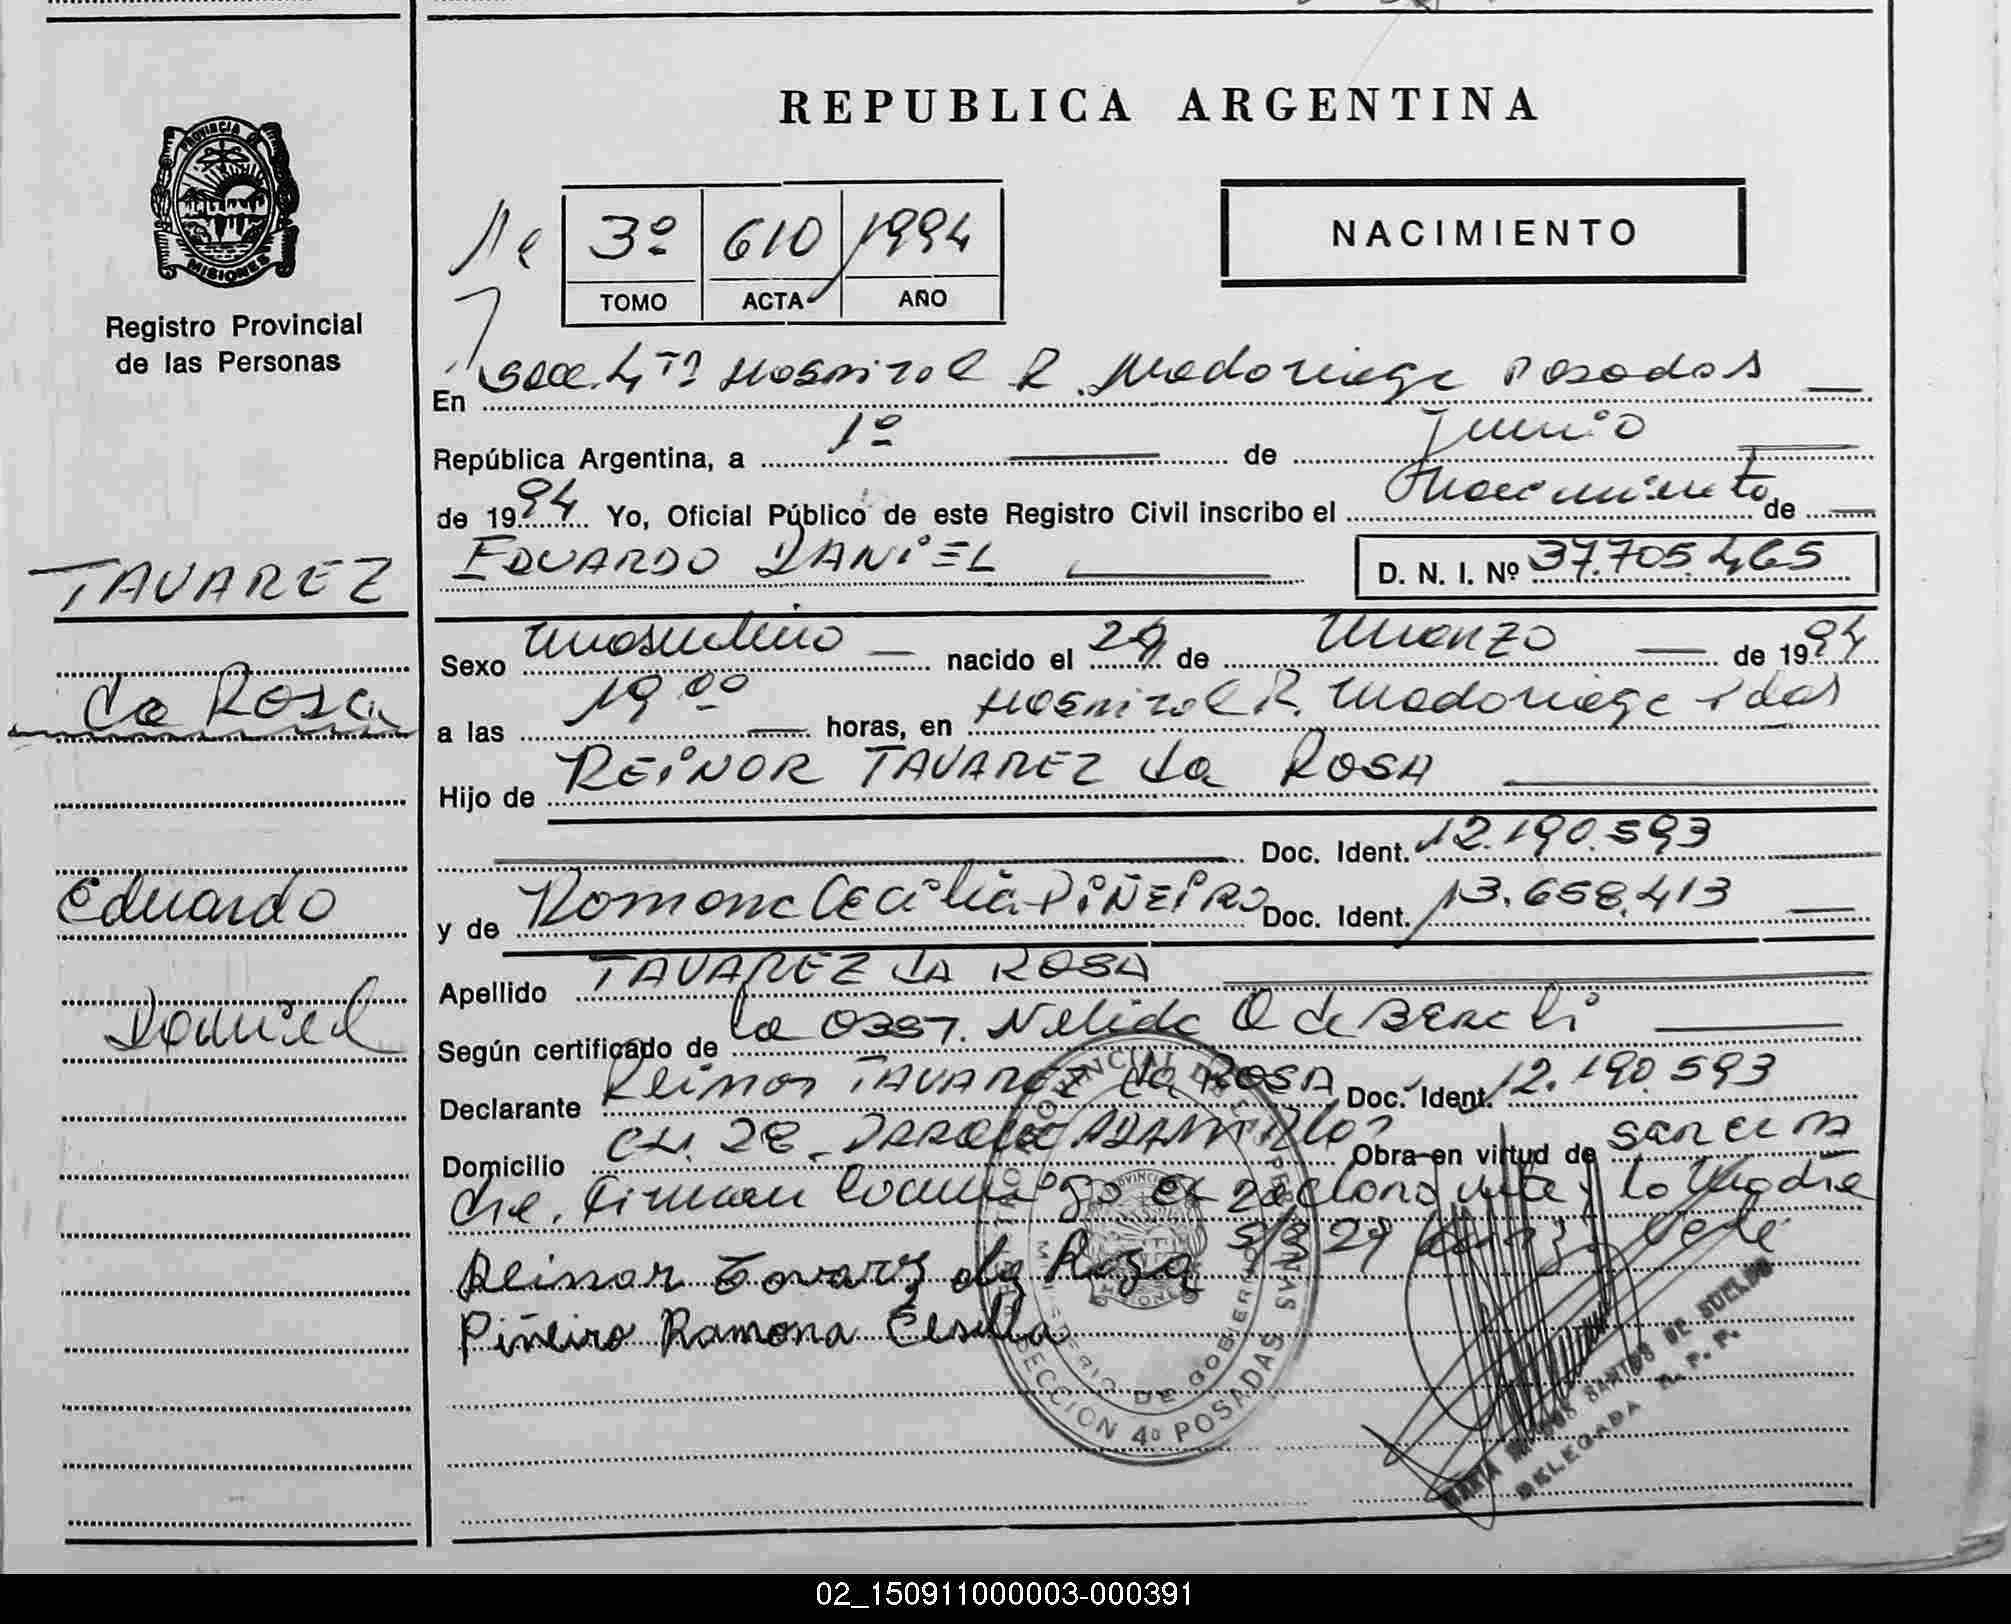 REPUBLICA ARGENTINA
PROVINCIA DE
MISIONES
Registro Provincial
de las Personas
3º 610 1994
TOMO ACTA AÑO
NACIMIENTO
En Secc. 4ta Hospital R. Madariaga Posadas
República Argentina, a 1º de Junio
de 1994 Yo, Oficial Público de este Registro Civil inscribo el Nacimiento de
EDUARDO DANIEL D. N. I. Nº 37.705.465
TAVAREZ
da Rosa
Eduardo
Daniel
Sexo Masculino nacido el 29 de Marzo de 1994
a las 19 00 horas, en Hospital R. Madariaga Pdas
Hijo de REINOR TAVAREZ da ROSA
Doc. Ident. 12.190.593
y de Ramona Cecilia PIÑEIRO Doc. Ident. 13.658.413
Apellido TAVAREZ dA ROSA
Según certificado de la OBST. Nelida O de
Declarante Reinor TAVAREZ da ROSA Doc. Ident. 12.190.593
Domicilio CH. 28 Obra en virtud de
Firman conmigo el declarante y la Madre
Vale
Reinor Tavarz da Roza
Piñeiro Ramona
MINISTERIO DE GOBIERNO
SECCION 4º POSADAS
SANTOS DE
DELEGADA R. P. P.
02_150911000003-000391